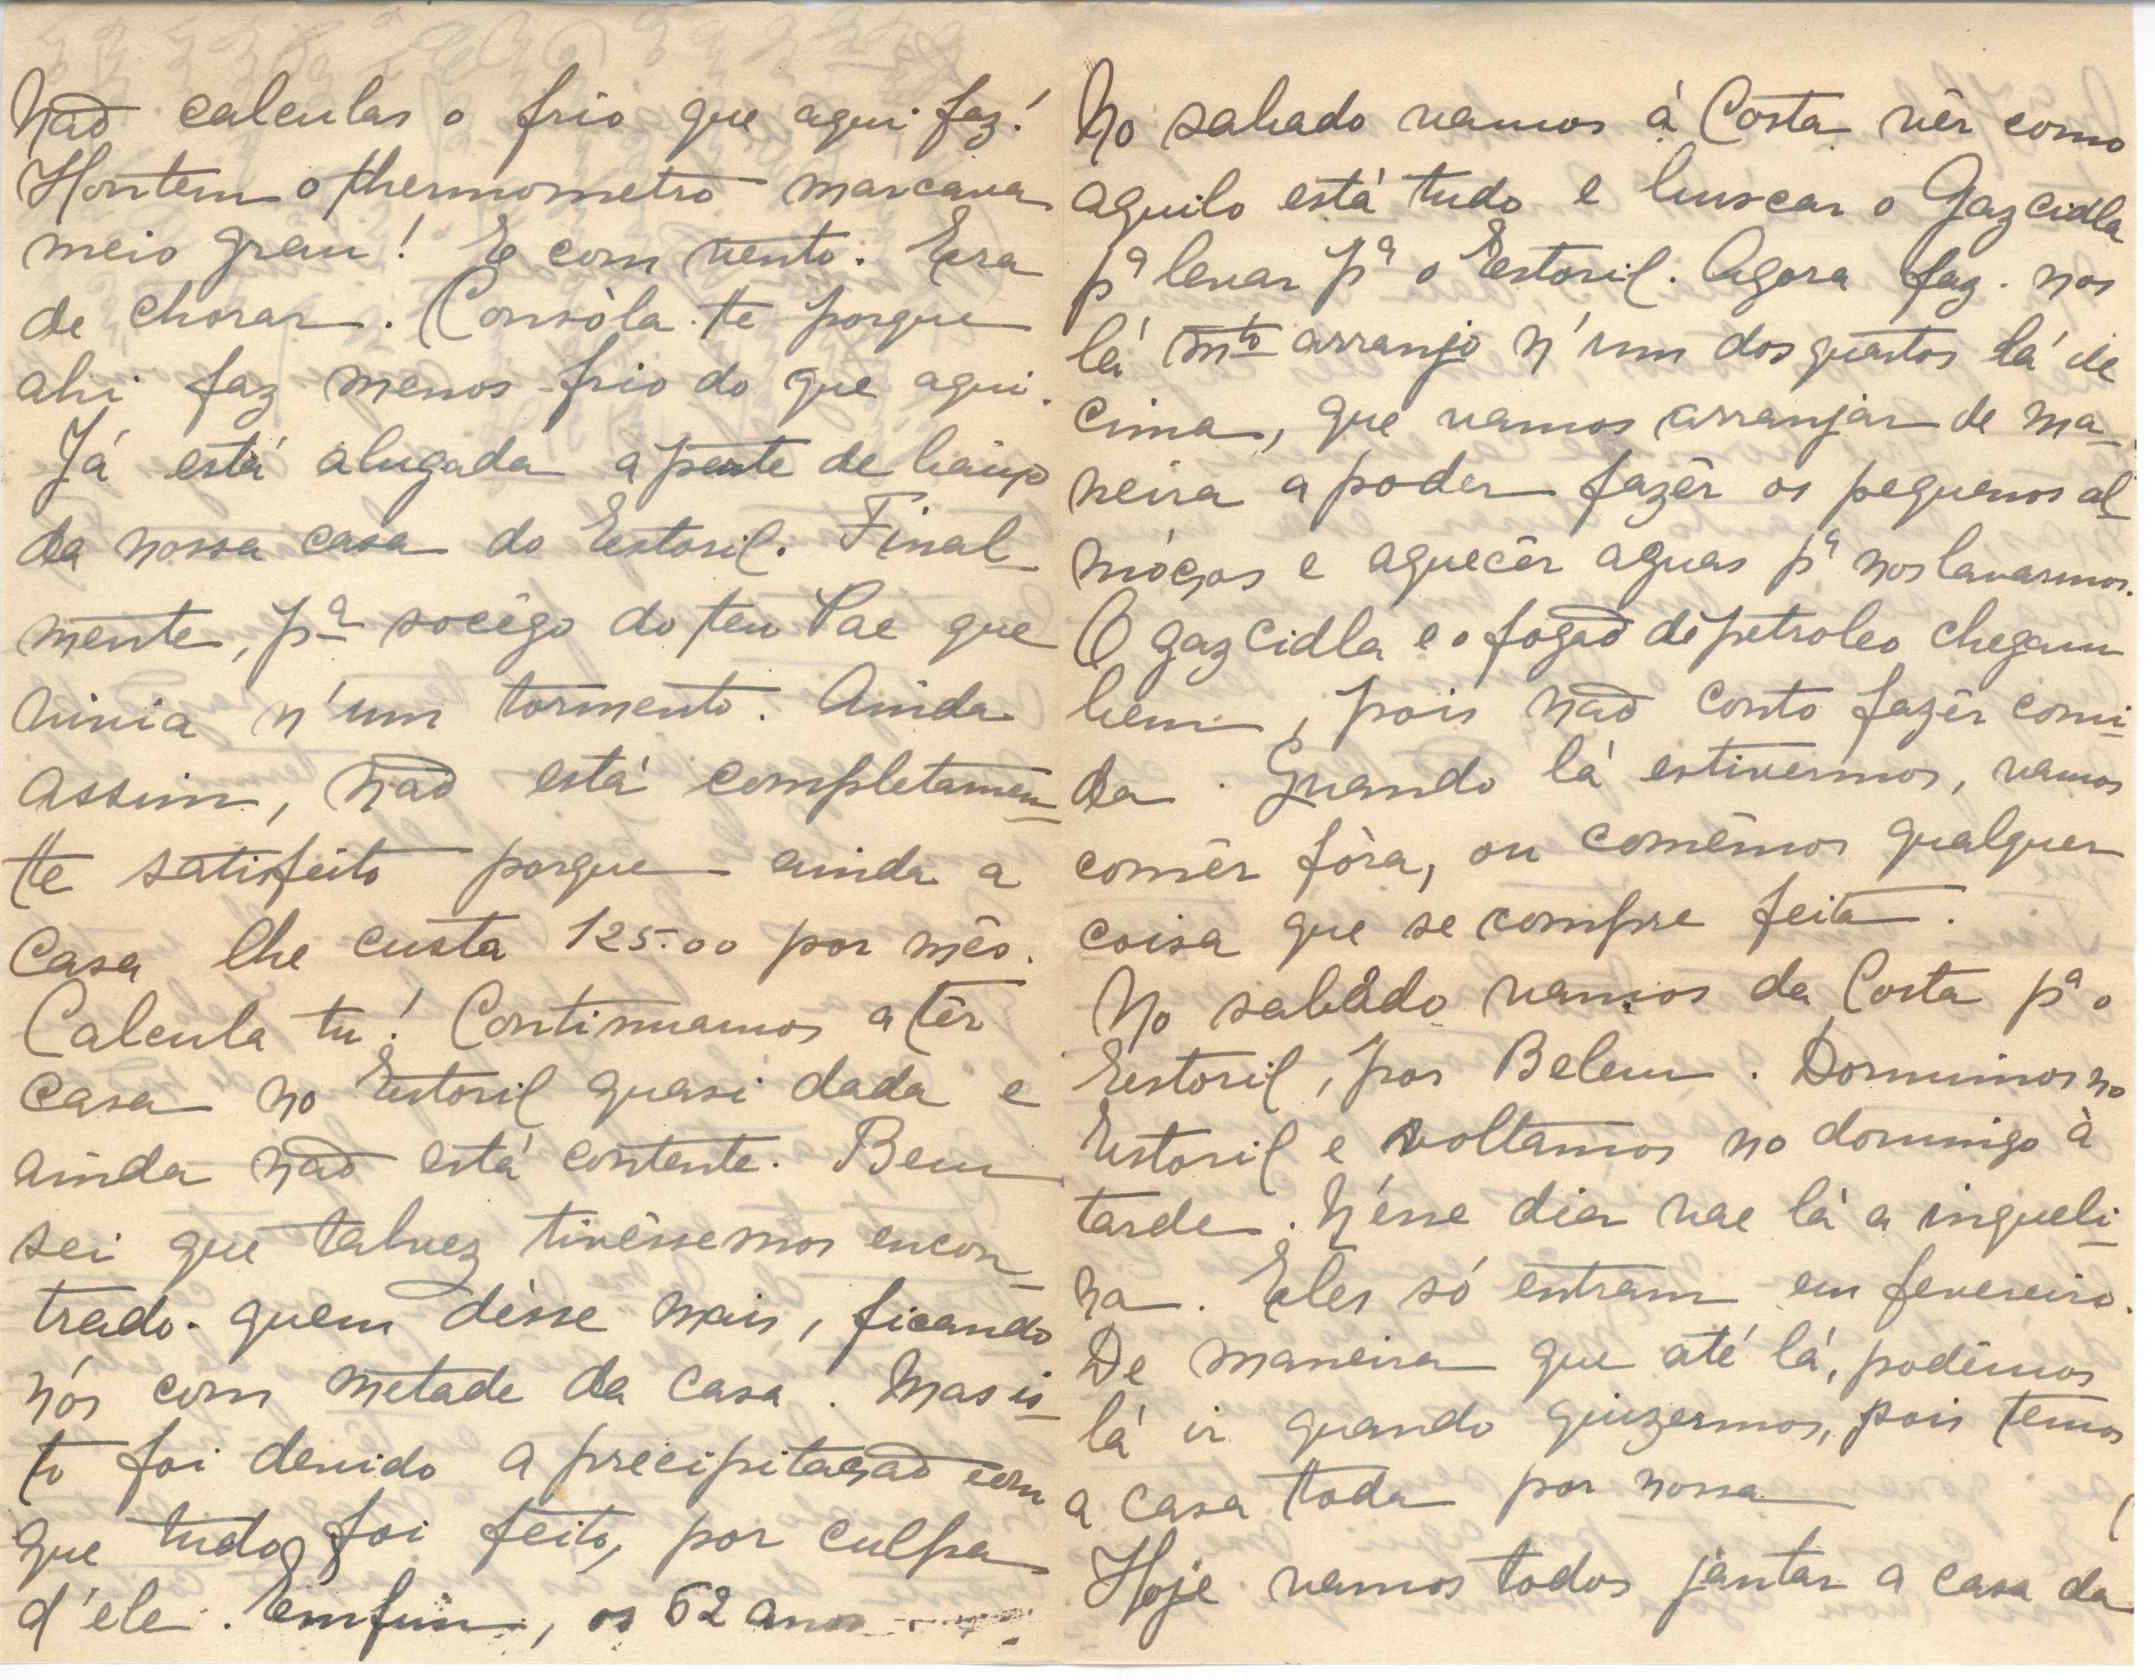 Não calculas o frio que aqui faz!
Hontem o thermometro marcava
meio grau! E com vento. Era
de chorar. Consòla-te porque
ahi faz menos frio do que aqui.
Já está alugada a parte de baixo
da nossa casa do Estoril. Final-
mente, pª socêgo do teu Pae que
vivia n'um tormento. Ainda
assim, não está completamen-
te satisfeito porque ainda a
casa lhe custa 125.00 por mês.
Calcula tu! Continuamos a têr
casa no Estoril quasi dada e
ainda não está contente. Bem
sei que talvez tivêssemos encon-
trado quem désse mais, ficando
nós com metade da casa. Mas is-
to foi devido a precipitação com
que tudo foi feito, por culpa
d'ele. Emfim, os 62 anos
No sabado vamos à Costa vêr como
aquilo está tudo e buscar o Gazcidla
pª levar pª o Estoril. Agora faz-nos
lá mto arranjo n'um dos quartos lá de
cima, que vamos arranjar de ma-
neira a poder fazêr os pequenos al-
móços e aquecêr aguas pª nos lavarmos.
O gazcidla e o fogão de petroleo chegam
bem, pois não conto fazêr comi-
da. Quando lá estivermos, vamos
comêr fóra, ou comêmos qualquer
coisa que se compre feita.
No sabado vamos da Costa pª o
Estoril, por Belem. Dormimos no
Estoril e voltamos no domingo à
tarde. N'ésse dia vae lá a inqueli-
na. Eles só entram em fevereiro.
De maneira que até lá, podêmos
lá ir quando quizermos, pois temos
a casa toda por nossa
Hoje vamos todos jantar a casa da